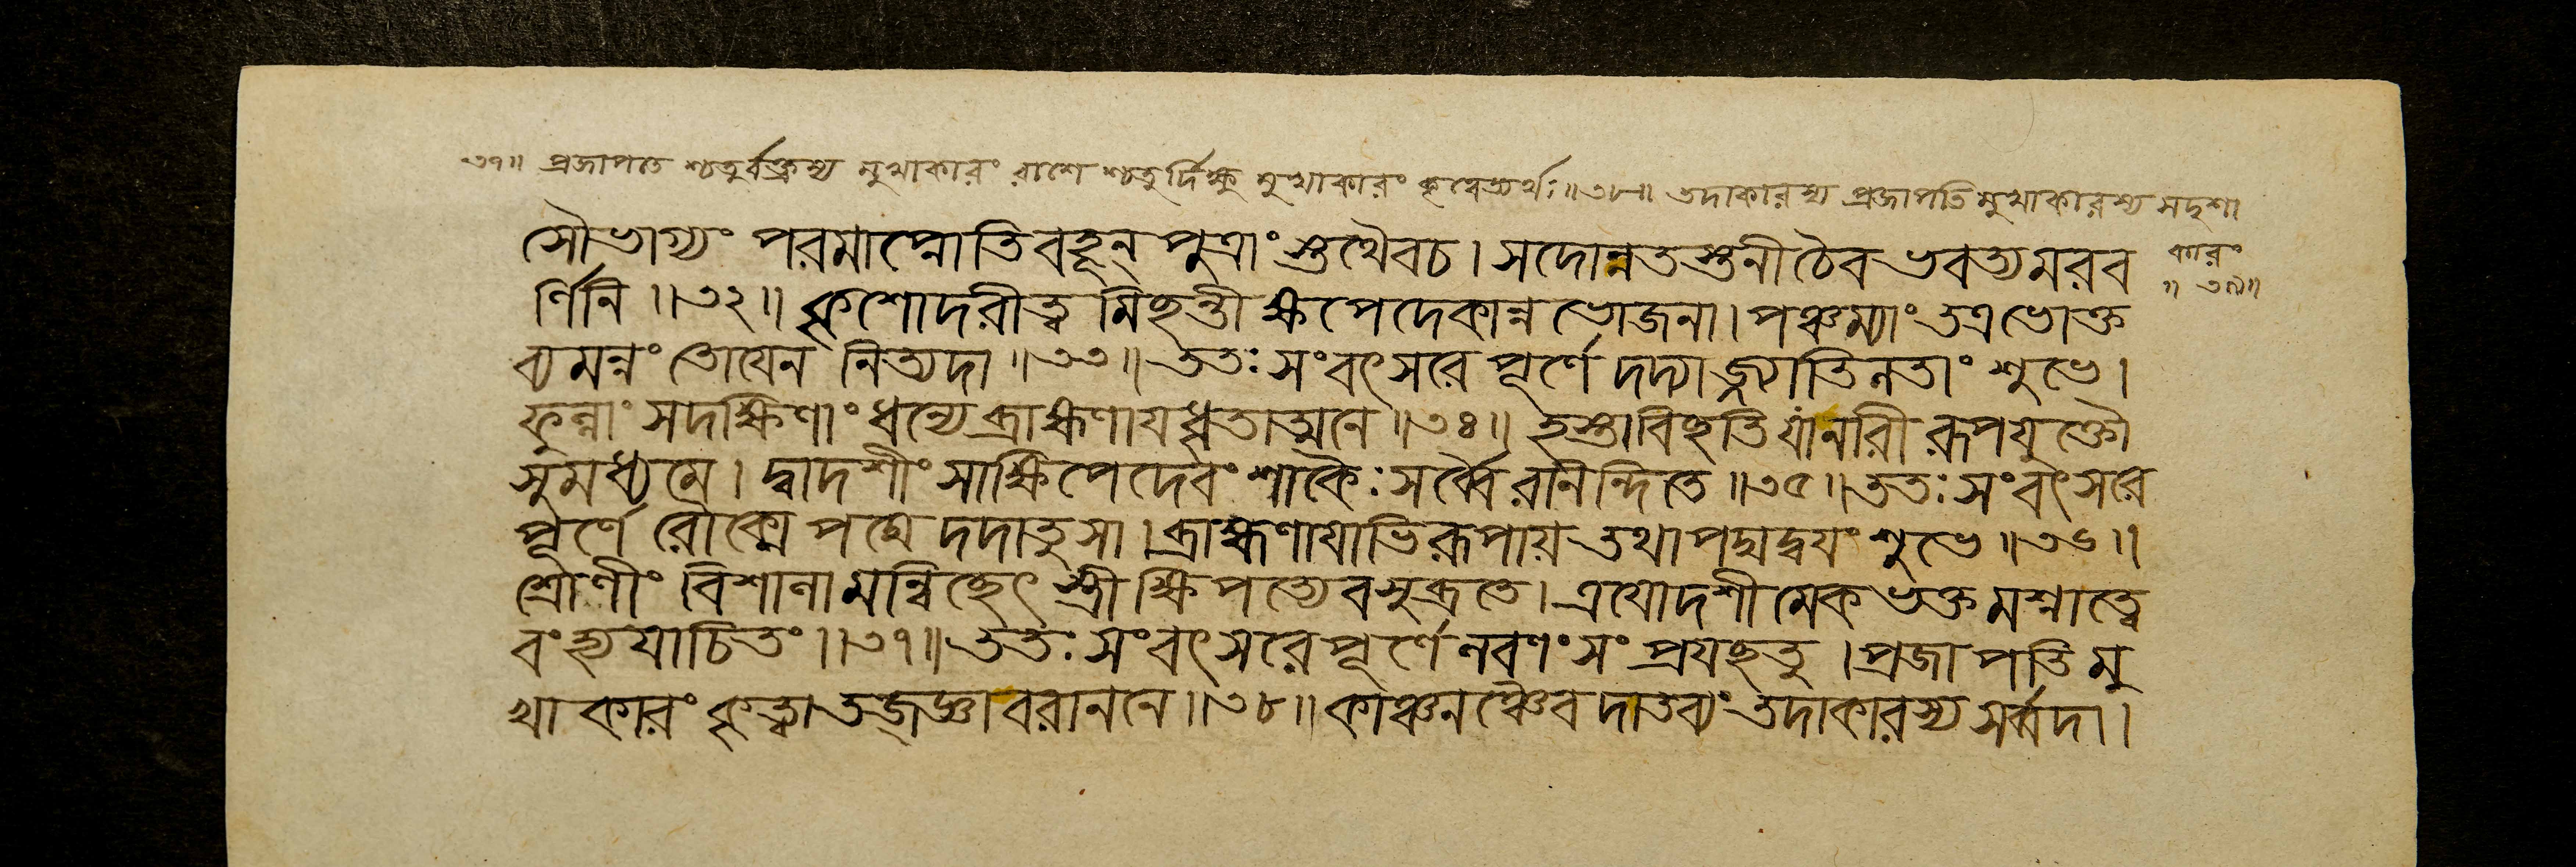 ৩৭॥ প্রজাপতে শ্চতুর্বক্ত্রস্য মুখাকারং রাশে শ্চতুর্দিক্ষু মুখাকারং কৃত্বেত্যর্থঃ॥৩৮॥ তদাকারস্য প্রজাপতিমুখাকারস্য সদৃশা
কারং
॥৩৯॥
সৌভাগ্যং পরমাপ্নোতিবহূন্ পুত্রাং স্তুথৈবচ। সদোন্নতস্তুনীচৈব ভবত্যমরব
র্ণিনি॥৩২॥ কৃশোদরীত্ব মিছন্তী ক্ষিপেদেকান্ন ভোজনা। পঞ্চম্যাং তত্রভোক্ত
ব্যমন্নং তোযেন নিত্যদা॥৩৩॥ ততঃ সংবৎসরে পূর্ণে দদ্যাজ্জাতিনতাং শুভে।
ফুল্লাং সদক্ষিণাং ধন্যে ব্রাহ্মণাযধৃতাত্মনে॥৩৪॥ হস্তাবিছতি যানারী রূপযুক্তৌ
সুমধ্যমে। দ্বাদশীং সাক্ষিপেদেবং শাকৈঃ সর্ব্বৈরনিন্দিতে॥৩৫॥ ততঃ সংবৎসরে
পূর্ণে রৌক্মে পদ্মে দদাতুসা। ব্রাহ্মণাযাভিরূপায় তথাপদ্মদ্বযং শুভে॥৩৬॥
শ্রোণীং বিশানামন্বিছেৎ স্ত্রীক্ষিপত্যেবসুব্রতে। ত্রযোদশীমেকভক্তমশ্নাত্ত্বে
বংহ্যযাচিতং॥৩৭॥ ততঃ সংবৎসরেপূর্ণে নবণংসং প্রযছতু। প্রজাপতিমু
খাকারং কৃত্বা তজ্জ্ঞাবরাননে॥৩৮॥ কাঞ্চনঞ্চৈবদাতব্যং তদাকারস্যসর্ব্বদা।